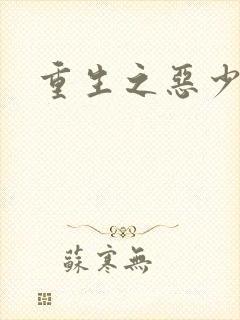 重生之惡少
蘇寒無